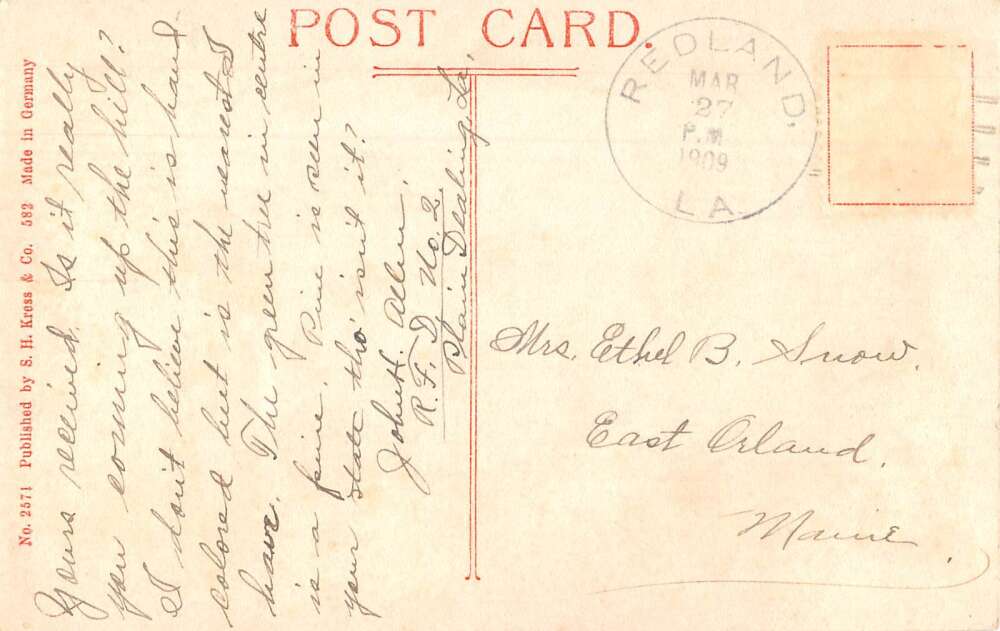 POST CARD.
REDLAND,
MAR
27
P.M
1909
LA
No. 2571 Published by S. H. Kress & Co. 582 Made in Germany
Yours received. Is it really
you coming up the hill?
I don't believe this is hand
colored but is the nearest I
have. The green tree in centre
is a pine. Pine is seen in
your state tho' isn't it?
John H. Allen,
R. F. D. No. 2
Plain Dealing, La.
Mrs. Ethel B. Snow.
East Orland.
Maine.